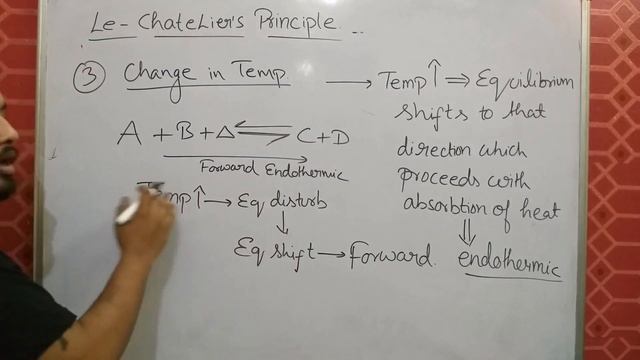 Le-Chatelier's Principle ..
③ Change in Temp
A + B + Δ ⇌ C + D
Forward Endothermic
Temp ↑ → Eq disturb
↓
Eq shift → Forward.
→ Temp ↑ ⇒ Eqcilibrium
shifts to that
direction which
proceeds with
absorbtion of heat
⇓
endothermic